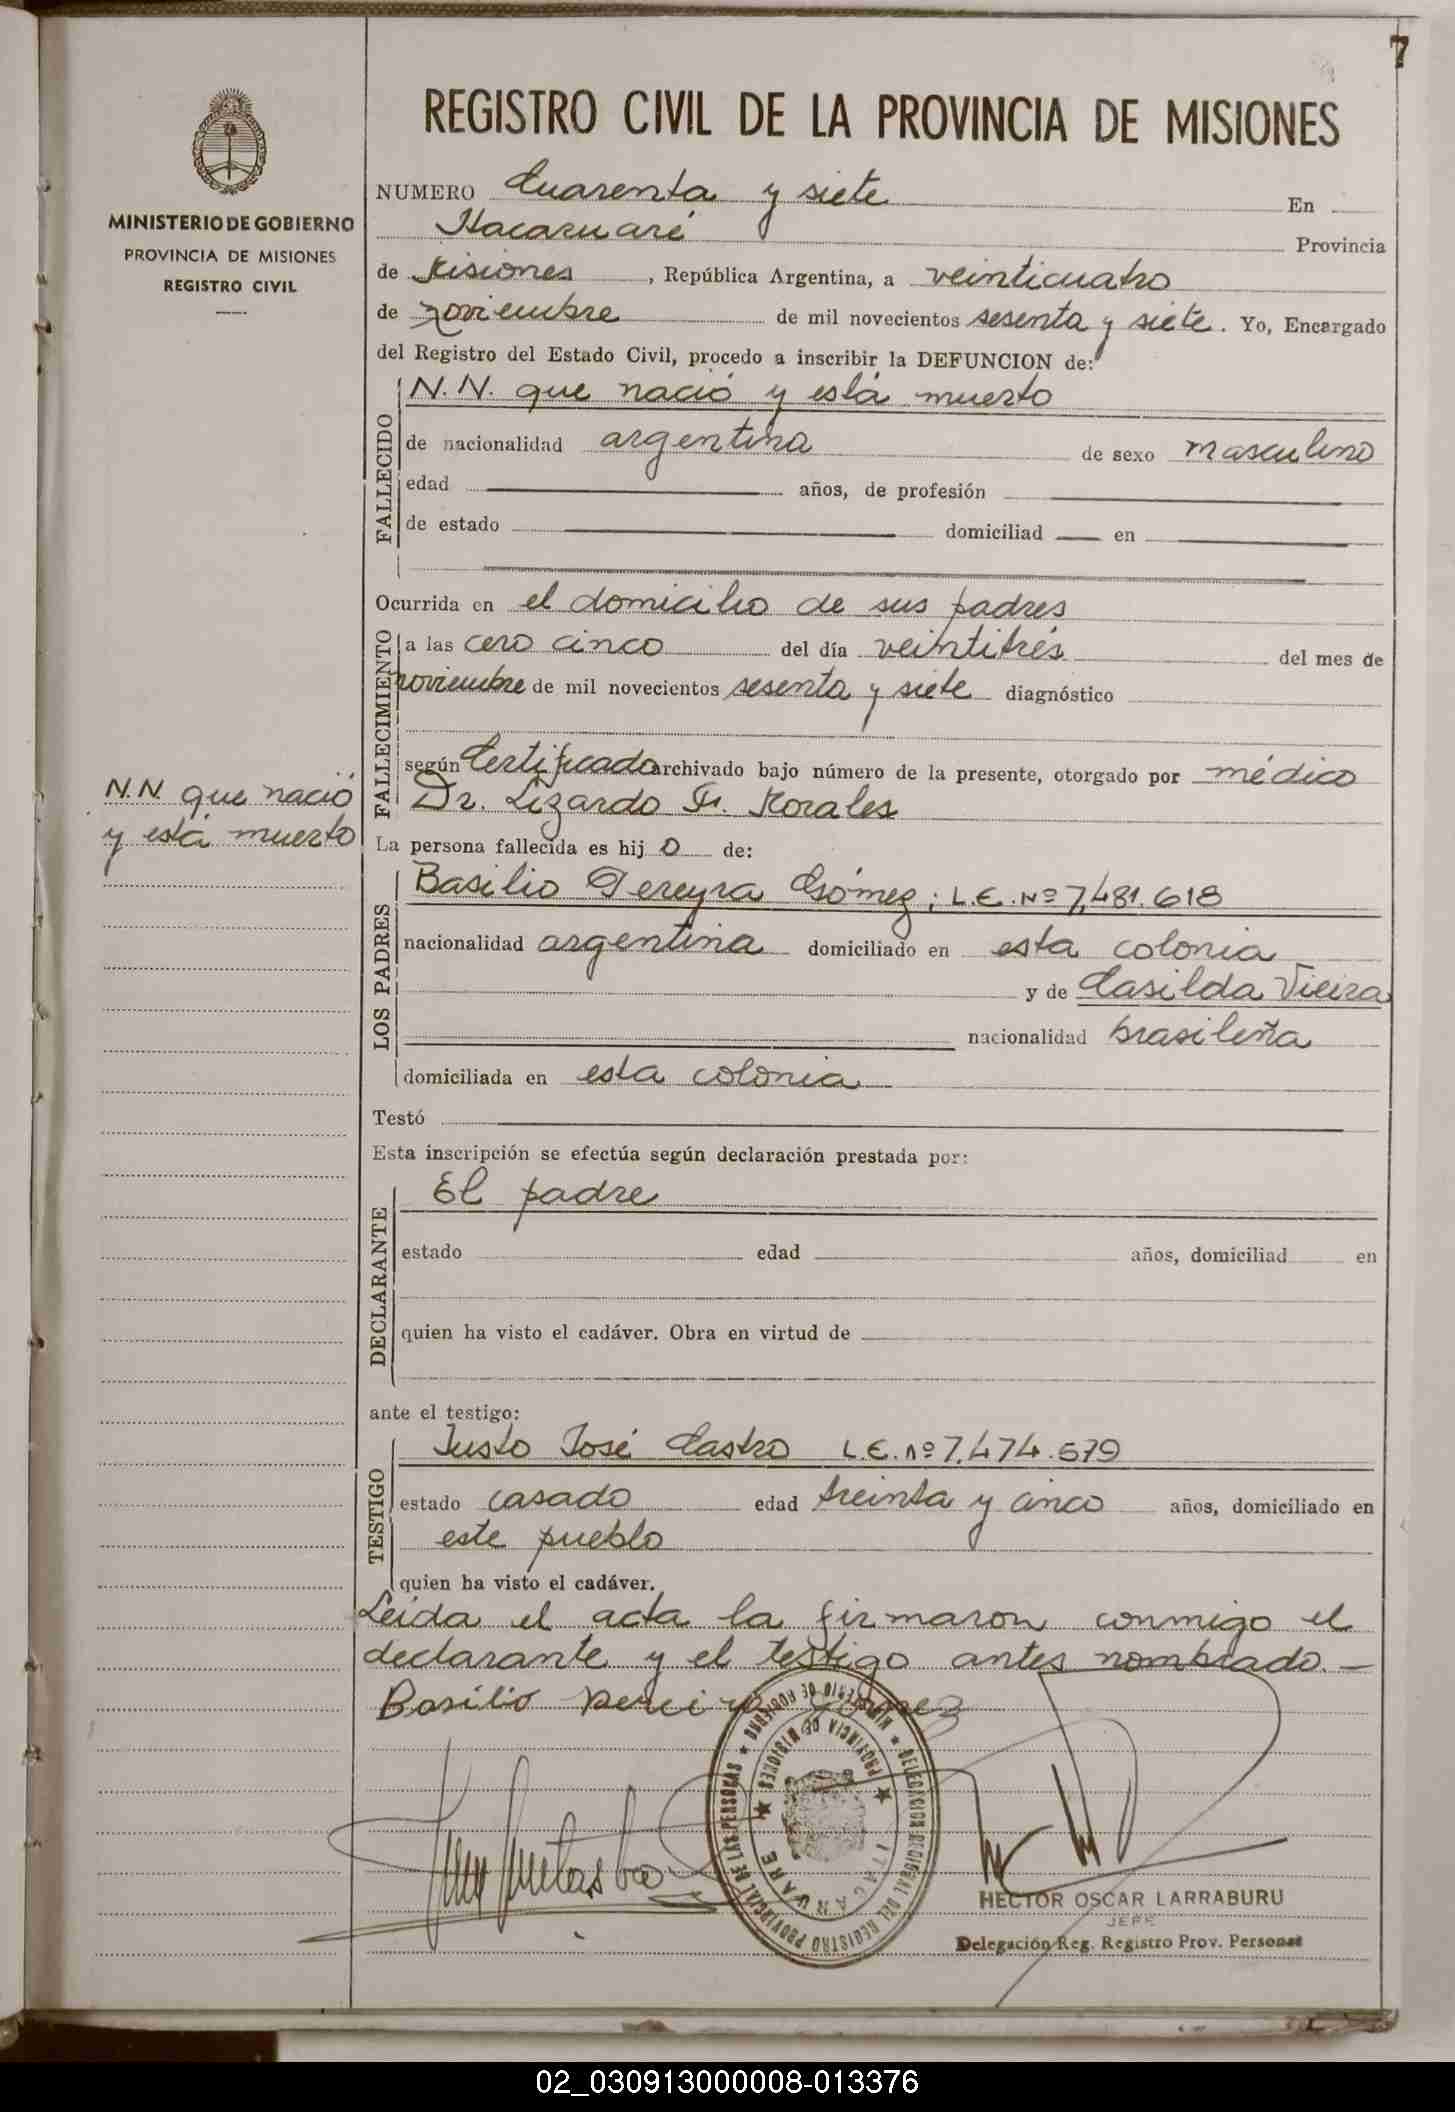 7
REGISTRO CIVIL DE LA PROVINCIA DE MISIONES
MINISTERIO DE GOBIERNO
PROVINCIA DE MISIONES
REGISTRO CIVIL
NUMERO Cuarenta y siete En
Itacaruaré Provincia
de Misiones , República Argentina, a veinticuatro
de noviembre de mil novecientos sesenta y siete. Yo, Encargado
del Registro del Estado Civil, procedo a inscribir la DEFUNCION de:
FALLECIDO
N.N. que nació y está muerto
de nacionalidad argentina de sexo masculino
edad años, de profesión
de estado domiciliad en
Ocurrida en el domicilio de sus padres
FALLECIMIENTO
a las cero cinco del día veintitrés del mes de
noviembre de mil novecientos sesenta y siete diagnóstico
según Certificado archivado bajo número de la presente, otorgado por médico
Dr. Lizardo F. Morales
N.N. que nació
y está muerto
La persona fallecida es hij o de:
LOS PADRES
Basilio Pereyra Gómez; L.E. Nº 7,481.618
nacionalidad argentina domiciliado en esta colonia
y de Casilda Vieira
nacionalidad brasileña
domiciliada en esta colonia
Testó
Esta inscripción se efectúa según declaración prestada por:
DECLARANTE
El padre
estado edad años, domiciliad en
quien ha visto el cadáver. Obra en virtud de
ante el testigo:
TESTIGO
Justo José Castro L.E. nº 7.474.579
estado casado edad treinta y cinco años, domiciliado en
este pueblo
quien ha visto el cadáver.
Leída el acta la firmaron conmigo el
declarante y el testigo antes nombrado.—
Basilio Pereira Gomez
DELEGACION REGIONAL DEL REGISTRO PROVINCIAL DE LAS PERSONAS ★ MINISTERIO DE GOBIERNO ★
PROVINCIA DE MISIONES ★ ITACARUARE ★
HECTOR OSCAR LARRABURU
JEFE
Delegación Reg. Registro Prov. Personas
02_030913000008-013376